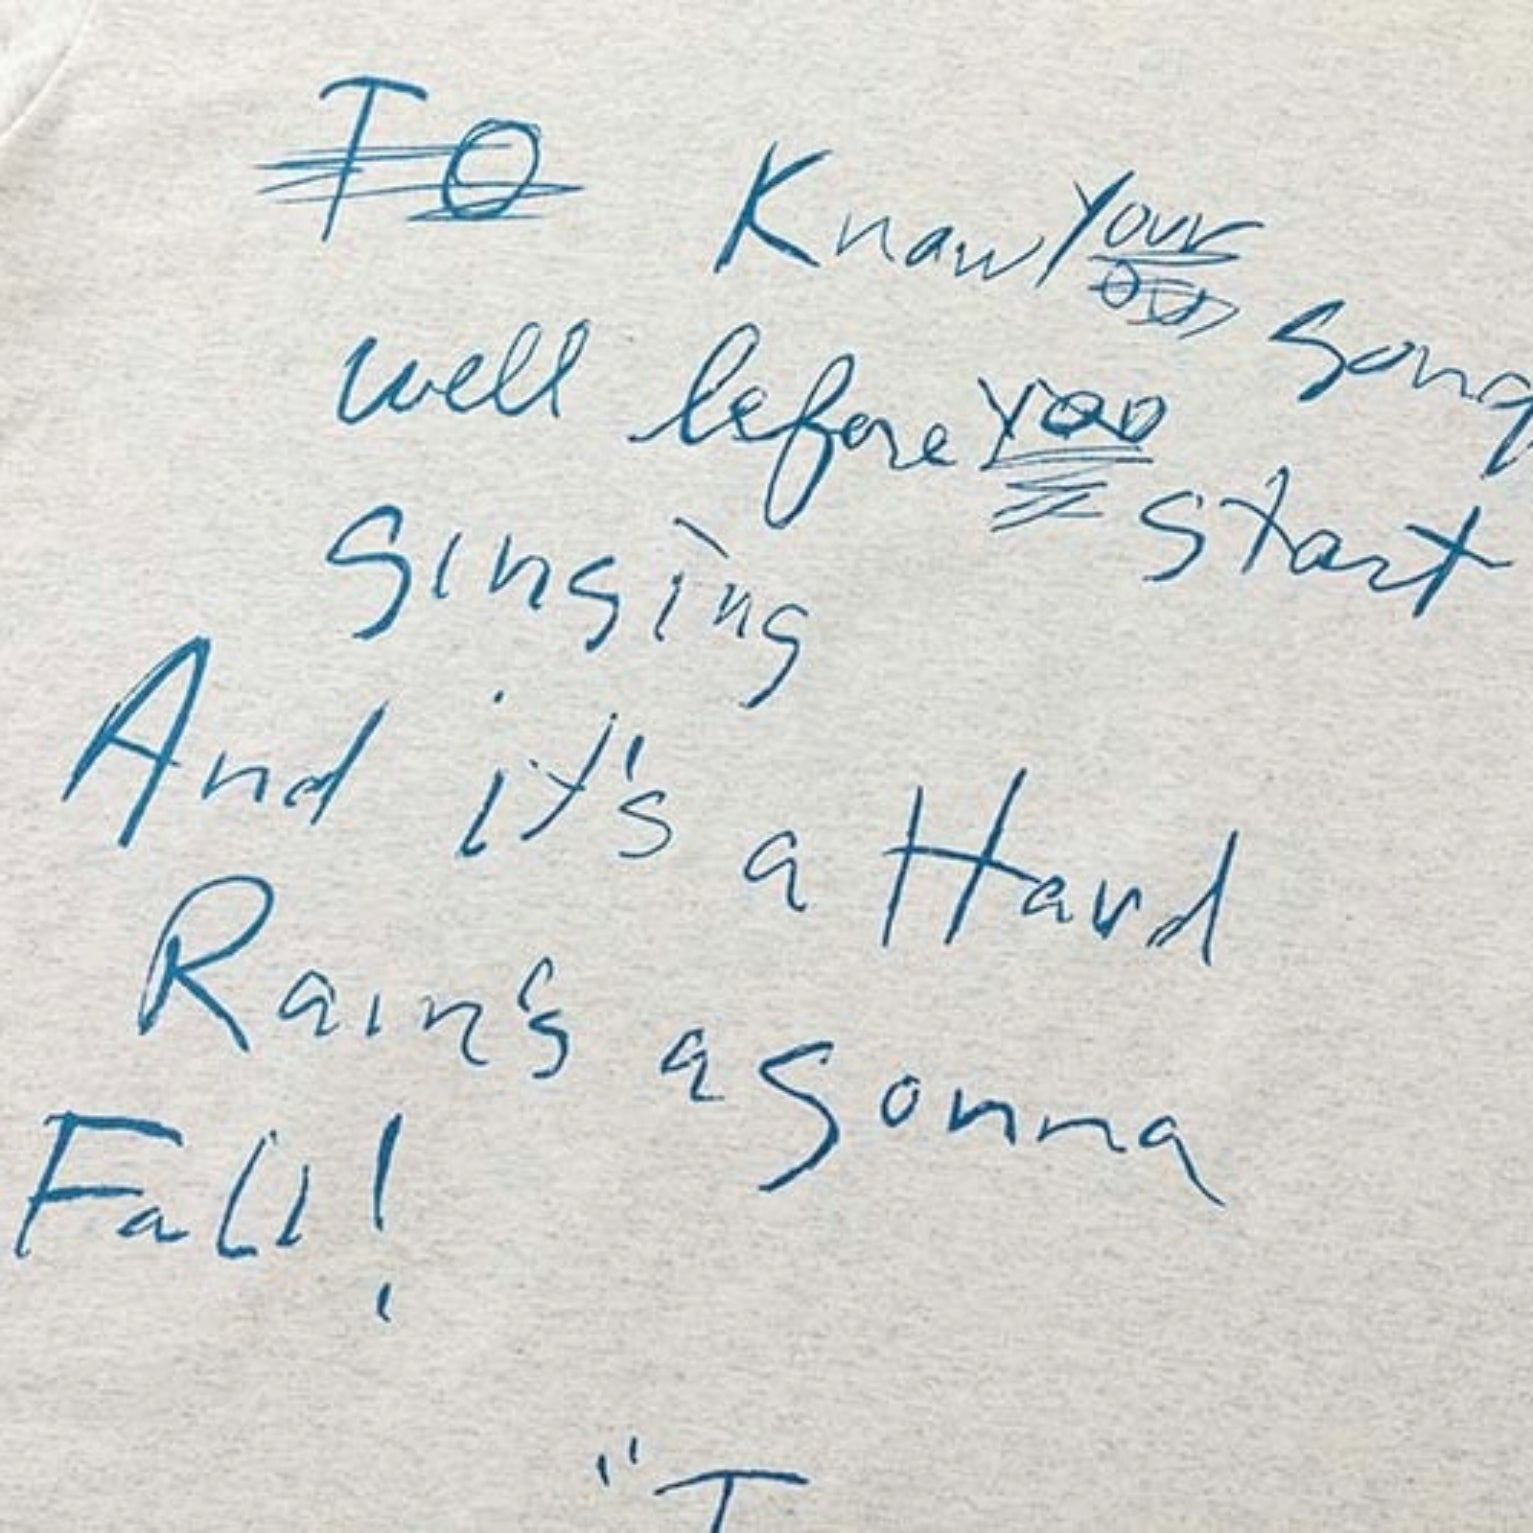 TO Know Your Song
well before you start
singing
And it's a Hard
Rain's a gonna
Fall!
"I